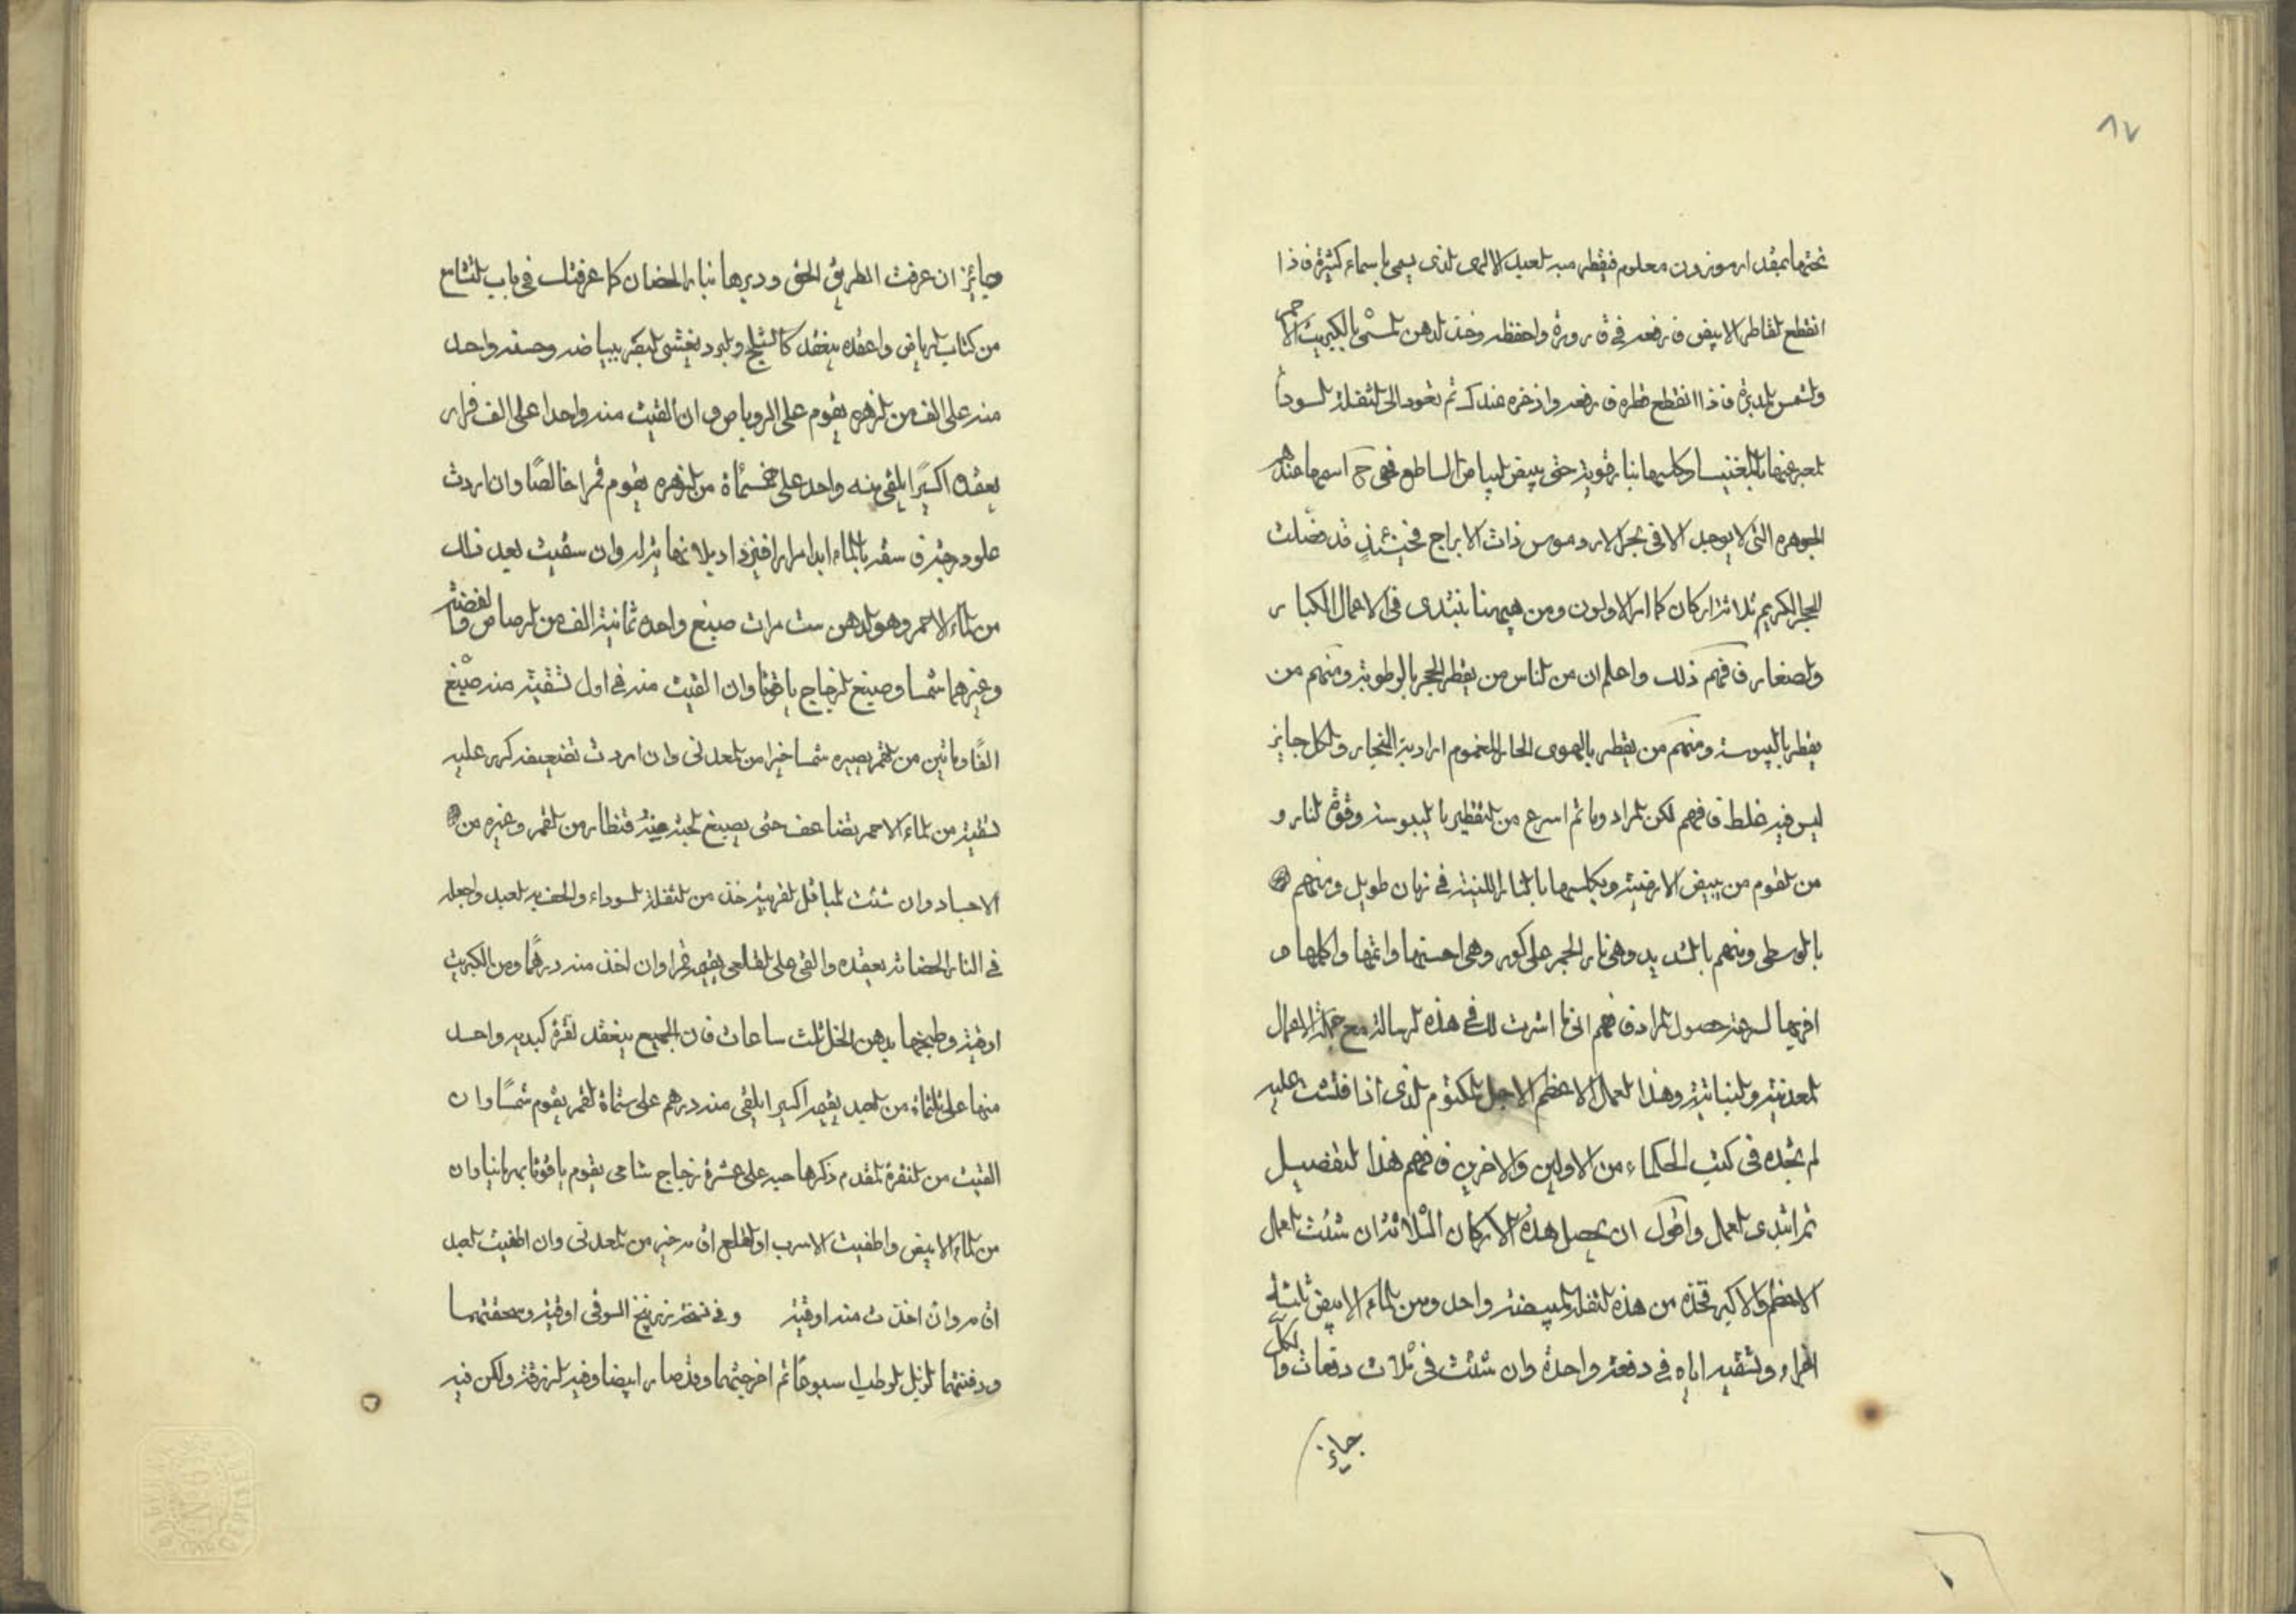 ٨٧
تحتها بمقدار موزون معلوم فيقطر منه العبد الالهى الذى يسمى باسماء كثيرة فاذا
انقطع القاطر الابيض فارفعه فى قارورة واحفظه وخذ الدهن المسمى بالكبريت الاحمر
والشمس المدبرة فاذا انقطع قطره فارفعه واذخره عندك ثم تعود الى الثقلة السودا
المعبر عنها بالمغنيسا وكلسها بنار قوية حتى يبيض البياض الساطع فهى ح اسمها عندهم
الجوهره التى لا يوجد الا فى بحر الاردموس ذات الابراج فحينئذ قد فصلت
الحجر الكريم ثلاثة اركان كما امر الاولون ومن هيهنا نبتدى فى الاعمال الكبار
والصغار فافهم ذلك واعلم ان من الناس من يقطر الحجر بالرطوبة ومنهم من
يقطر باليبوسة ومنهم من يقطر بالهوى الحار المغموم ارادية النجار والكل جايز
ليس فيه غلط فافهم لكن المراد وما تم اسرع من التقطير باليبوسة وقوة النار و
من القوم من يبيض الارضية ويكلسها بالنار اللينة فى زمان طويل ومنهم
بالوسطى ومنهم بالشديد وهى نار الحجر على كور وهى احسنها واتمها واكملها و
اقربها لسرعة حصول المراد فافهم انى ما اشرت لك فى هذه الرسالة مع جملة الاعمال
المعدنية والنباتية وهذا العمل الاعظم الاجل المكتوم الذى اذا فتشت عليه
لم تجده فى كتب الحكماء من الاولين والاخرين فافهم هذا التفصيل
ثم ابتدى العمل واقول ان تحصل هذه الاركان الثلاثة ان شئت العمل
الاعظم والاكبر فخذ من هذه الثقلة المبيضة واحد ومن الماء الابيض ثلثة
اجزاء وتسقيه اياه فى دفعة واحدة وان شئت فى ثلاث دفعات والكل
جايز
وجايز ان عرفت الطريق الحق ودبرها بنار الحضان كما عرفتك فى باب النتاج
من كتاب الرياض واعقده ينعقد كالثلج والبرد يغشى البصر ببياضه وحسنه واحد
منه على الف من الزهره يقوم على الروباص وان القيت منه واحدا على الف فرار
يعقده اكسيرًا يلقى منه واحد على خمسمأة من الزهره يقوم قمرا خالصًا وان اردت
علو درجته فاسقه بالماء ابدا مرارا فيزداد بلا نهاية ابدا وان سقيت بعد ذلك
من الماء الاحمر وهو الدهن ست مرات صبغ واحده ثمانية الف من الرصاص والفضة
وغيرهما شمسا وصبغ الزجاج ياقوتا وان القيت منه فى اول تسقية منه صبغ
الفًا وماتين من القمر يصيره شمسا خيرا من المعدنى وان اردت تضعيفه كرر عليه
تسقيته من الماء الاحمر يتضاعف حتى يصبغ الحبة منه قنطار من القمر وغيره من
الاجساد وان شئت المباقل القريبة خذ من الثقلة السوداء والحف به العبد واجعله
فى النار الحضانة يعقده والقى على القلعى يقيمه قمرا وان اخذ منه درهمًا ومن الكبريت
اوقية وطبخها بدهن الخل ثلث ساعات فان الجميع ينعقد نقرة كبديه واحد
منها على ثلثماة من العبد يقيمه اكسيرا يلقى منه درهم على ستماة القمر يقوم شمسًا وان
القيت من النقرة المقدم ذكرها حبه على عشرة زجاج شامى يقوم ياقوتا بهرمانيا وان
من الماء الابيض واطفيت الاسرب او القلع اقامه خير من المعدنى وان اطفيت العبد
اقامه وان اخذت منه اوقية وفى نسخة زرنيخ السوفى اوقية وسحقتهما
ودفنتهما الزبل الرطب اسبوعًا ثم اخرجتهما وقد صار ابيضا وفيه الزرقة ولكن فيه